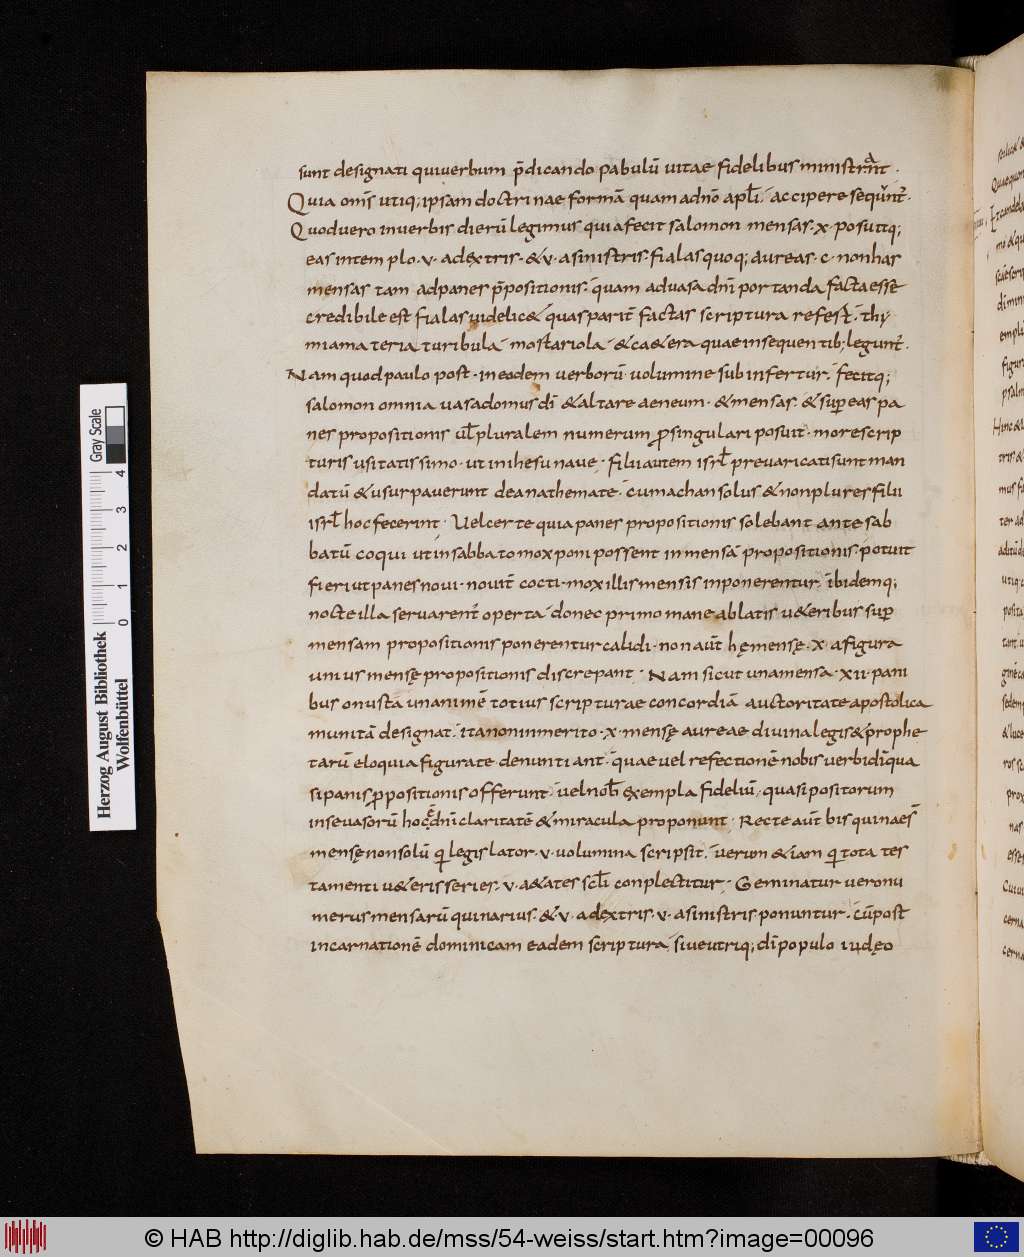 sunt designati qui uerbum p̄dicando pabulū uitae fidelibus ministrant .
Quia om̄s utiq; ipsam doctrinae formā quam a dn̄o apl̄i accipere sequunt̄ .
Quod uero in uerbis dierū legimus quia fecit salomon mensas · x · posuitq;
eas in templo · v · a dextris · & · v · a sinistris · fialas quoq; aureas · c · non has
mensas tam ad panes p̄positionis · quam ad uasa dn̄i portanda facta esse
credibile est fialas uidelic& quas parit̄ factas scriptura refert · thy
miamateria turibula mostariola · & ca&era quae in sequentib; legunt̄ .
Nam quod paulo post · in eodem uerborū uolumine subinfertur · fecitq;
salomon omnia uasa domus dī & altare aeneum · & mensas · & sup eas pa
nes propositionis ul̄ pluralem numerum p singulari posuit · more scrip
turis usitatissimo · ut in ihesu naue · filii autem isrl̄ preuaricati sunt man
datū & usurpauerunt de anathemate · cum achan solus & non plures filii
isrl̄ hoc fecerint · Uel certe quia panes propositionis solebant ante sab
batū coqui ut in sabbato mox poni possent in mensā propositionis · potuit
fieri ut panes noui · nouit̄ cocti · mox illis mensis inponerentur · ibidemq;
nocte illa seruarent̄ operta donec primo mane ablatis u&eribus sup
mensam propositionis ponerentur calidi · non aūt hę mensę · x · a figura
unius mensę propositionis discrepant · Nam sicut una mensa · xii · pani
bus onusta unanimē totius scripturae concordiā auctoritate apostolica
munitā designat · ita non inmerito · x · mensę aureae diuina legis & prophe
tarū eloquia figurate denuntiant · quae uel refectionē nobis uerbi dī qua
si panis p̄positionis offerunt · uel nob̄ exempla fideliū quasi positorum
in se uasorū hoc ē dn̄i claritatē & miracula proponunt · Recte aūt bis quinae s̄
mensę non solū qi legislator · v · uolumina scripsit · uerum & iam qi tota tes
tamenti u&eris series · v · a&ates scl̄i conplectitur · Geminatur uero nu
merus mensarū quinarius · & · v · a dextris · v · a sinistris ponuntur · cū post
incarnationē dominicam eadem scriptura siue utriq; dī populo iudęo
Herzog August Bibliothek
Wolfenbüttel
Gray Scale
0 1 2 3 4
© HAB http://diglib.hab.de/mss/54-weiss/start.htm?image=00096